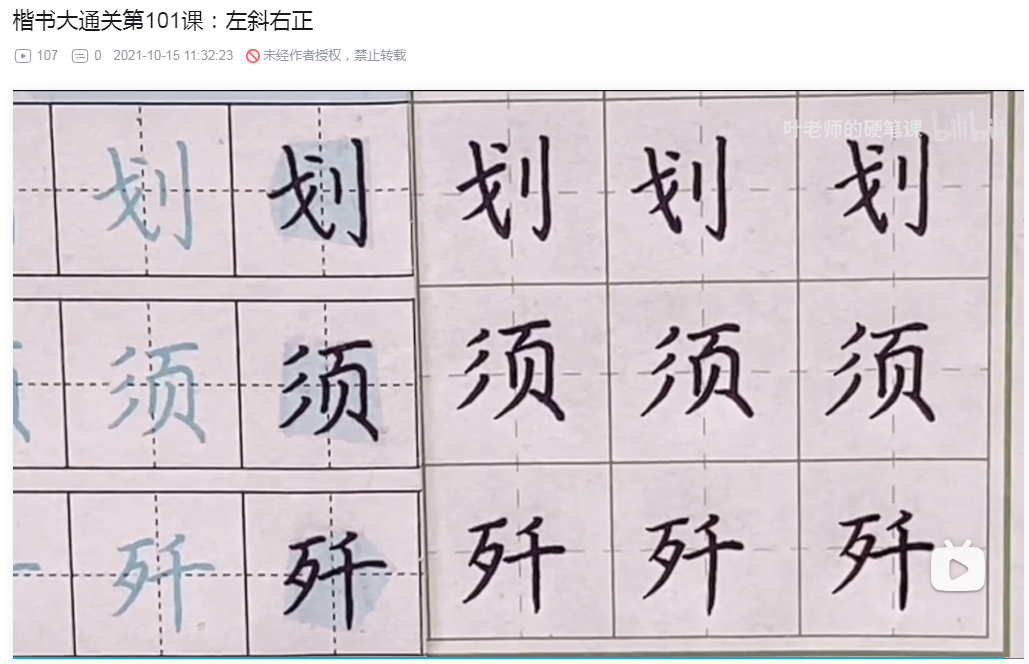 楷书大通关第101课：左斜右正
107 0 2021-10-15 11:32:23 未经作者授权，禁止转载
叶老师的硬笔课 bilibili
划 划 划 划 划
须 须 须 须 须
歼 歼 歼 歼 歼